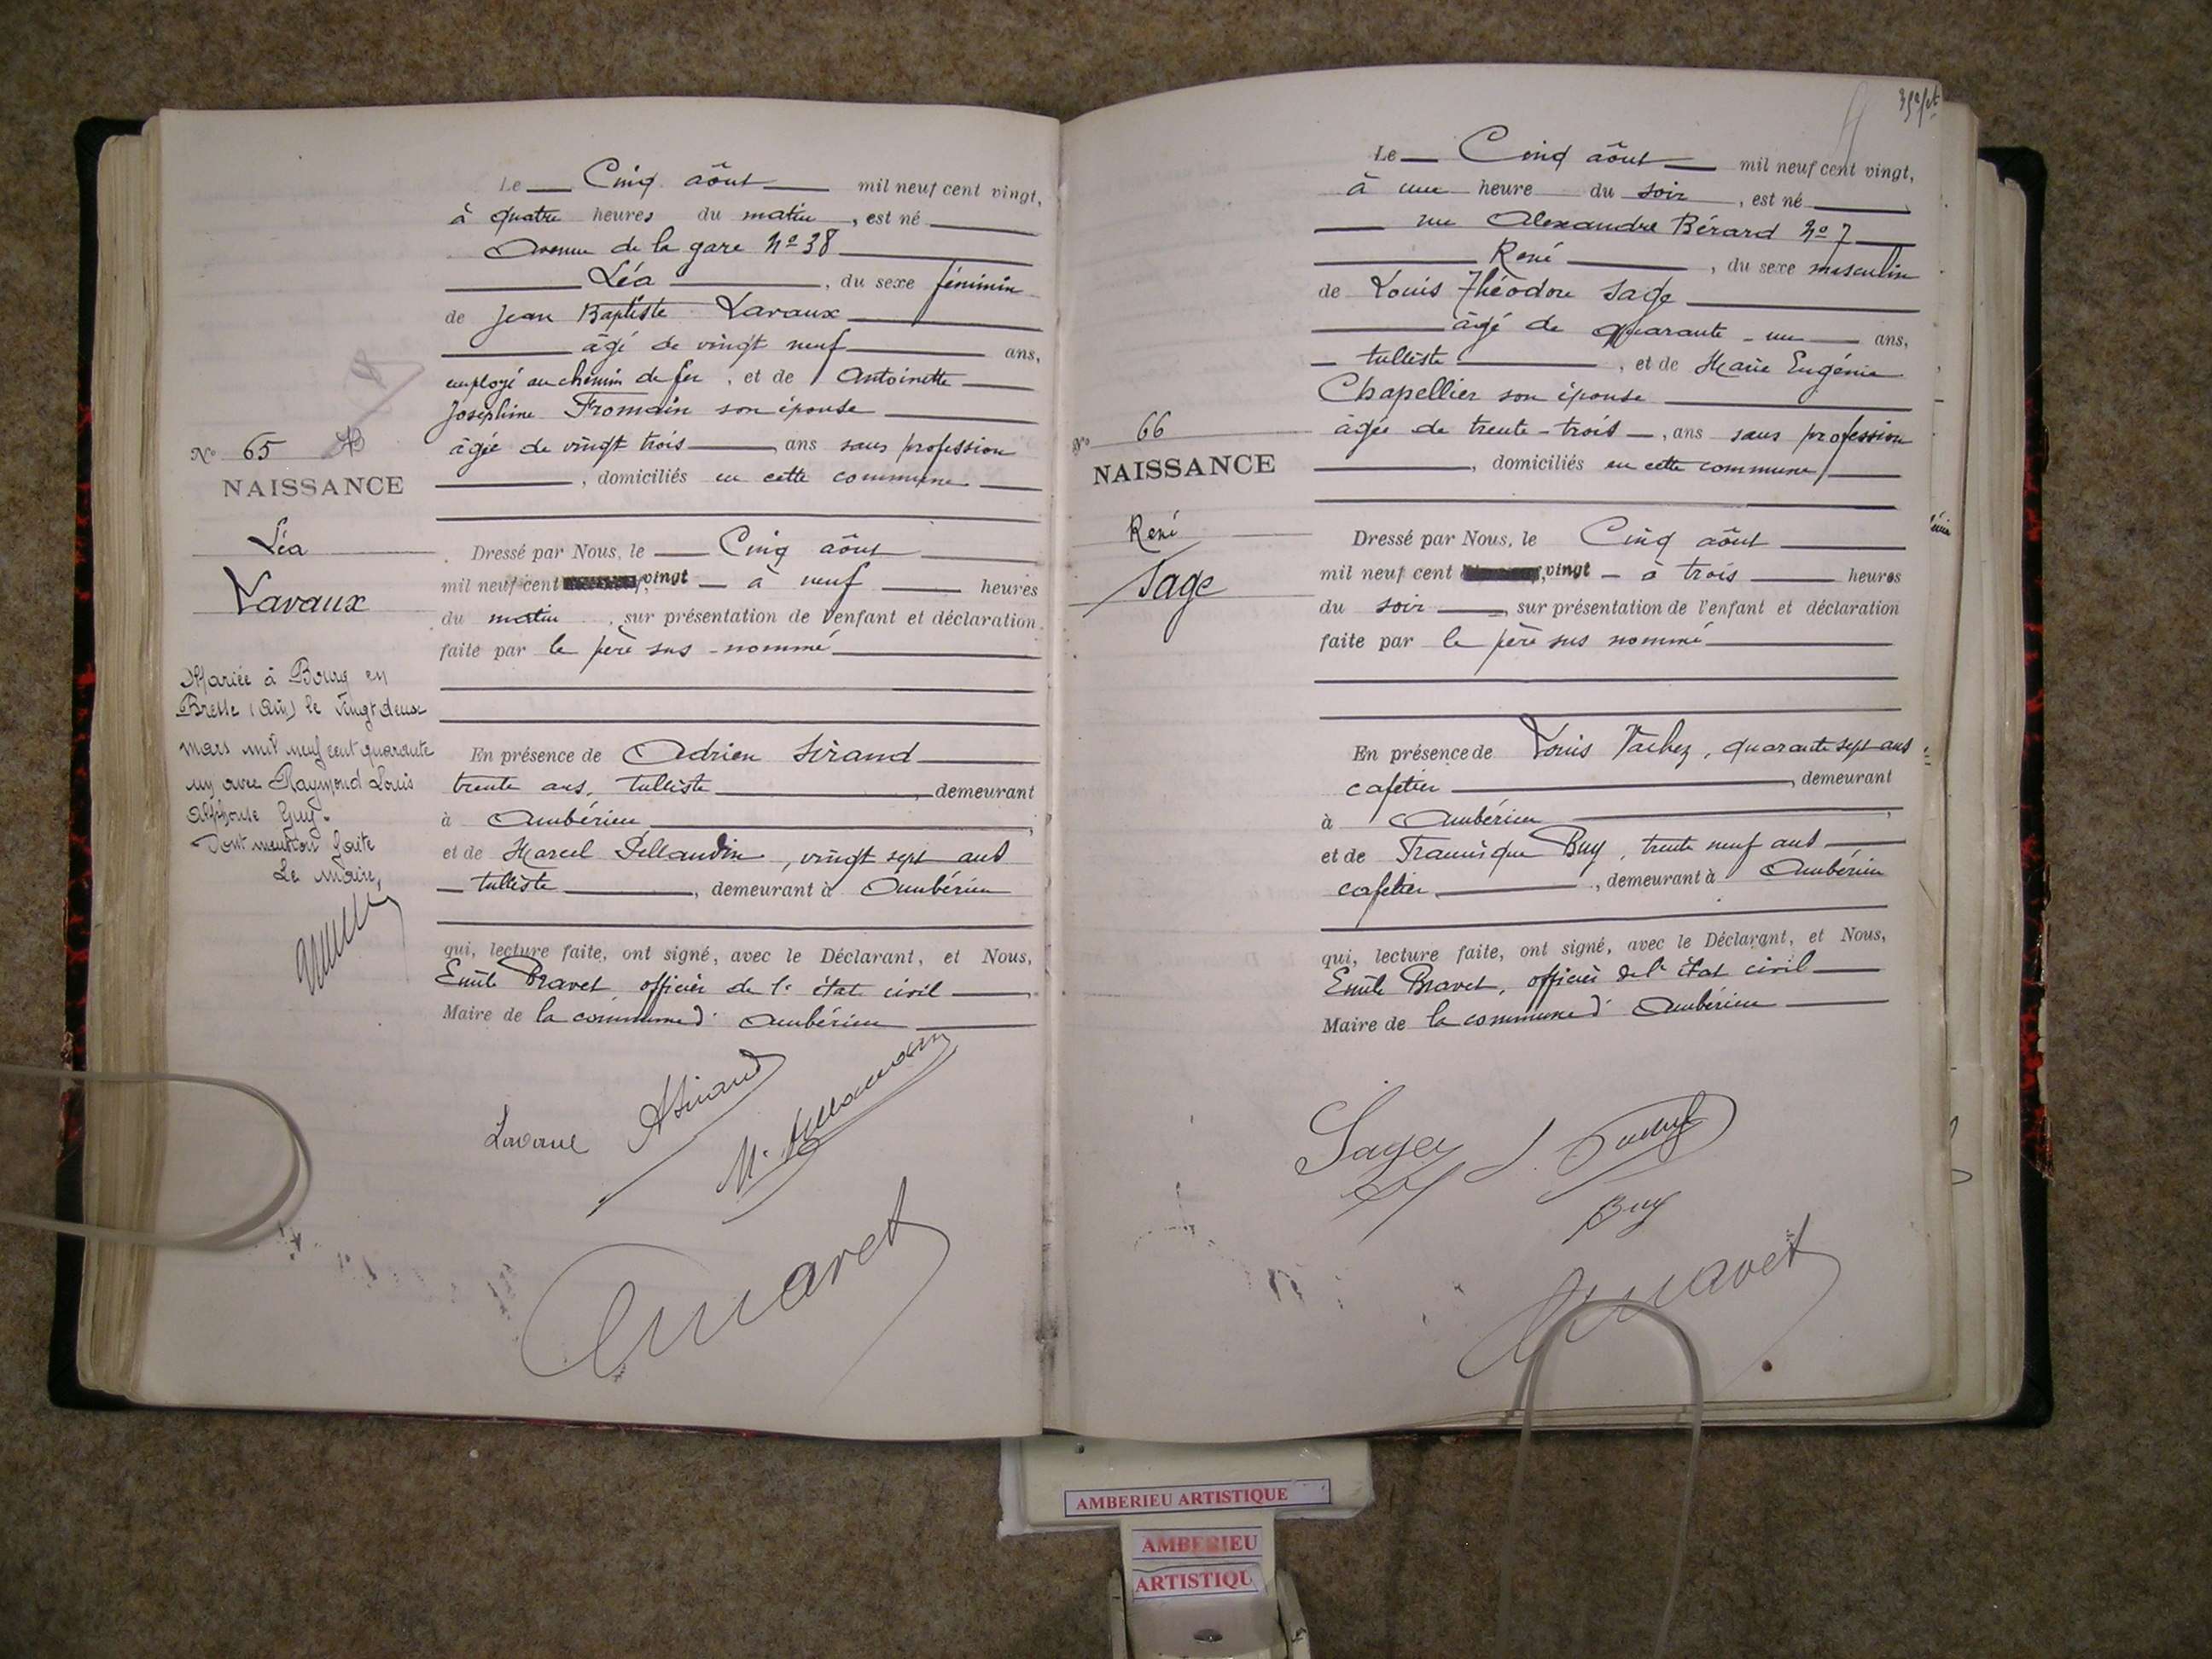 Le Cinq aôut mil neuf cent vingt,
à quatre heures du matin, est né
Avenue de la gare Nº 38
Léa, du sexe féminin
de Jean Baptiste Lavaux
âgé de vingt neuf ans,
employé au chemin de fer, et de Antoinette
Joséphine Fromain son épouse
âgée de vingt trois ans sans profession
, domiciliés en cette commune
Nº 65
NAISSANCE
Léa
Lavaux
Dressé par Nous, le Cinq aôut
mil neuf cent vingt à neuf heures
du matin, sur présentation de l'enfant et déclaration
faite par le père sus-nommé
Mariée à Bourg en
Bresse (Ain) le vingt deux
mars mil neuf cent quarante
un avec Raymond Louis
Alphonse Guy.
Dont mention faite
Le Maire,
En présence de Adrien Sirand
trente ans, tulliste, demeurant
à Ambérieu
et de Marcel, vingt sept ans
tulliste, demeurant à Ambérieu
qui, lecture faite, ont signé, avec le Déclarant, et Nous,
Emile Bravet officier de l'état civil
Maire de la commune d'Ambérieu
Lavaux
ASirand
Bravet
Le Cinq aôut mil neuf cent vingt,
à une heure du soir, est né
rue Alexandre Bérard Nº 7
René, du sexe masculin
de Louis Théodore Sage
âgé de quarante-un ans,
tulliste, et de Marie Eugénie
Chapellier son épouse
âgée de trente-trois, ans sans profession
, domiciliés en cette commune
Nº 66
NAISSANCE
René
Sage
Dressé par Nous, le Cinq aôut
mil neuf cent vingt à trois heures
du soir, sur présentation de l'enfant et déclaration
faite par le père sus nommé
En présence de Louis Vachez, quarante sept ans
cafetier, demeurant
à Ambérieu
et de Francisque Buy, trente neuf ans
cafetier, demeurant à Ambérieu
qui, lecture faite, ont signé, avec le Déclarant, et Nous,
Emile Bravet, officier de l'état civil
Maire de la commune d'Ambérieu
Sage
Buy
Bravet
AMBERIEU ARTISTIQUE
AMBERIEU
ARTISTIQU